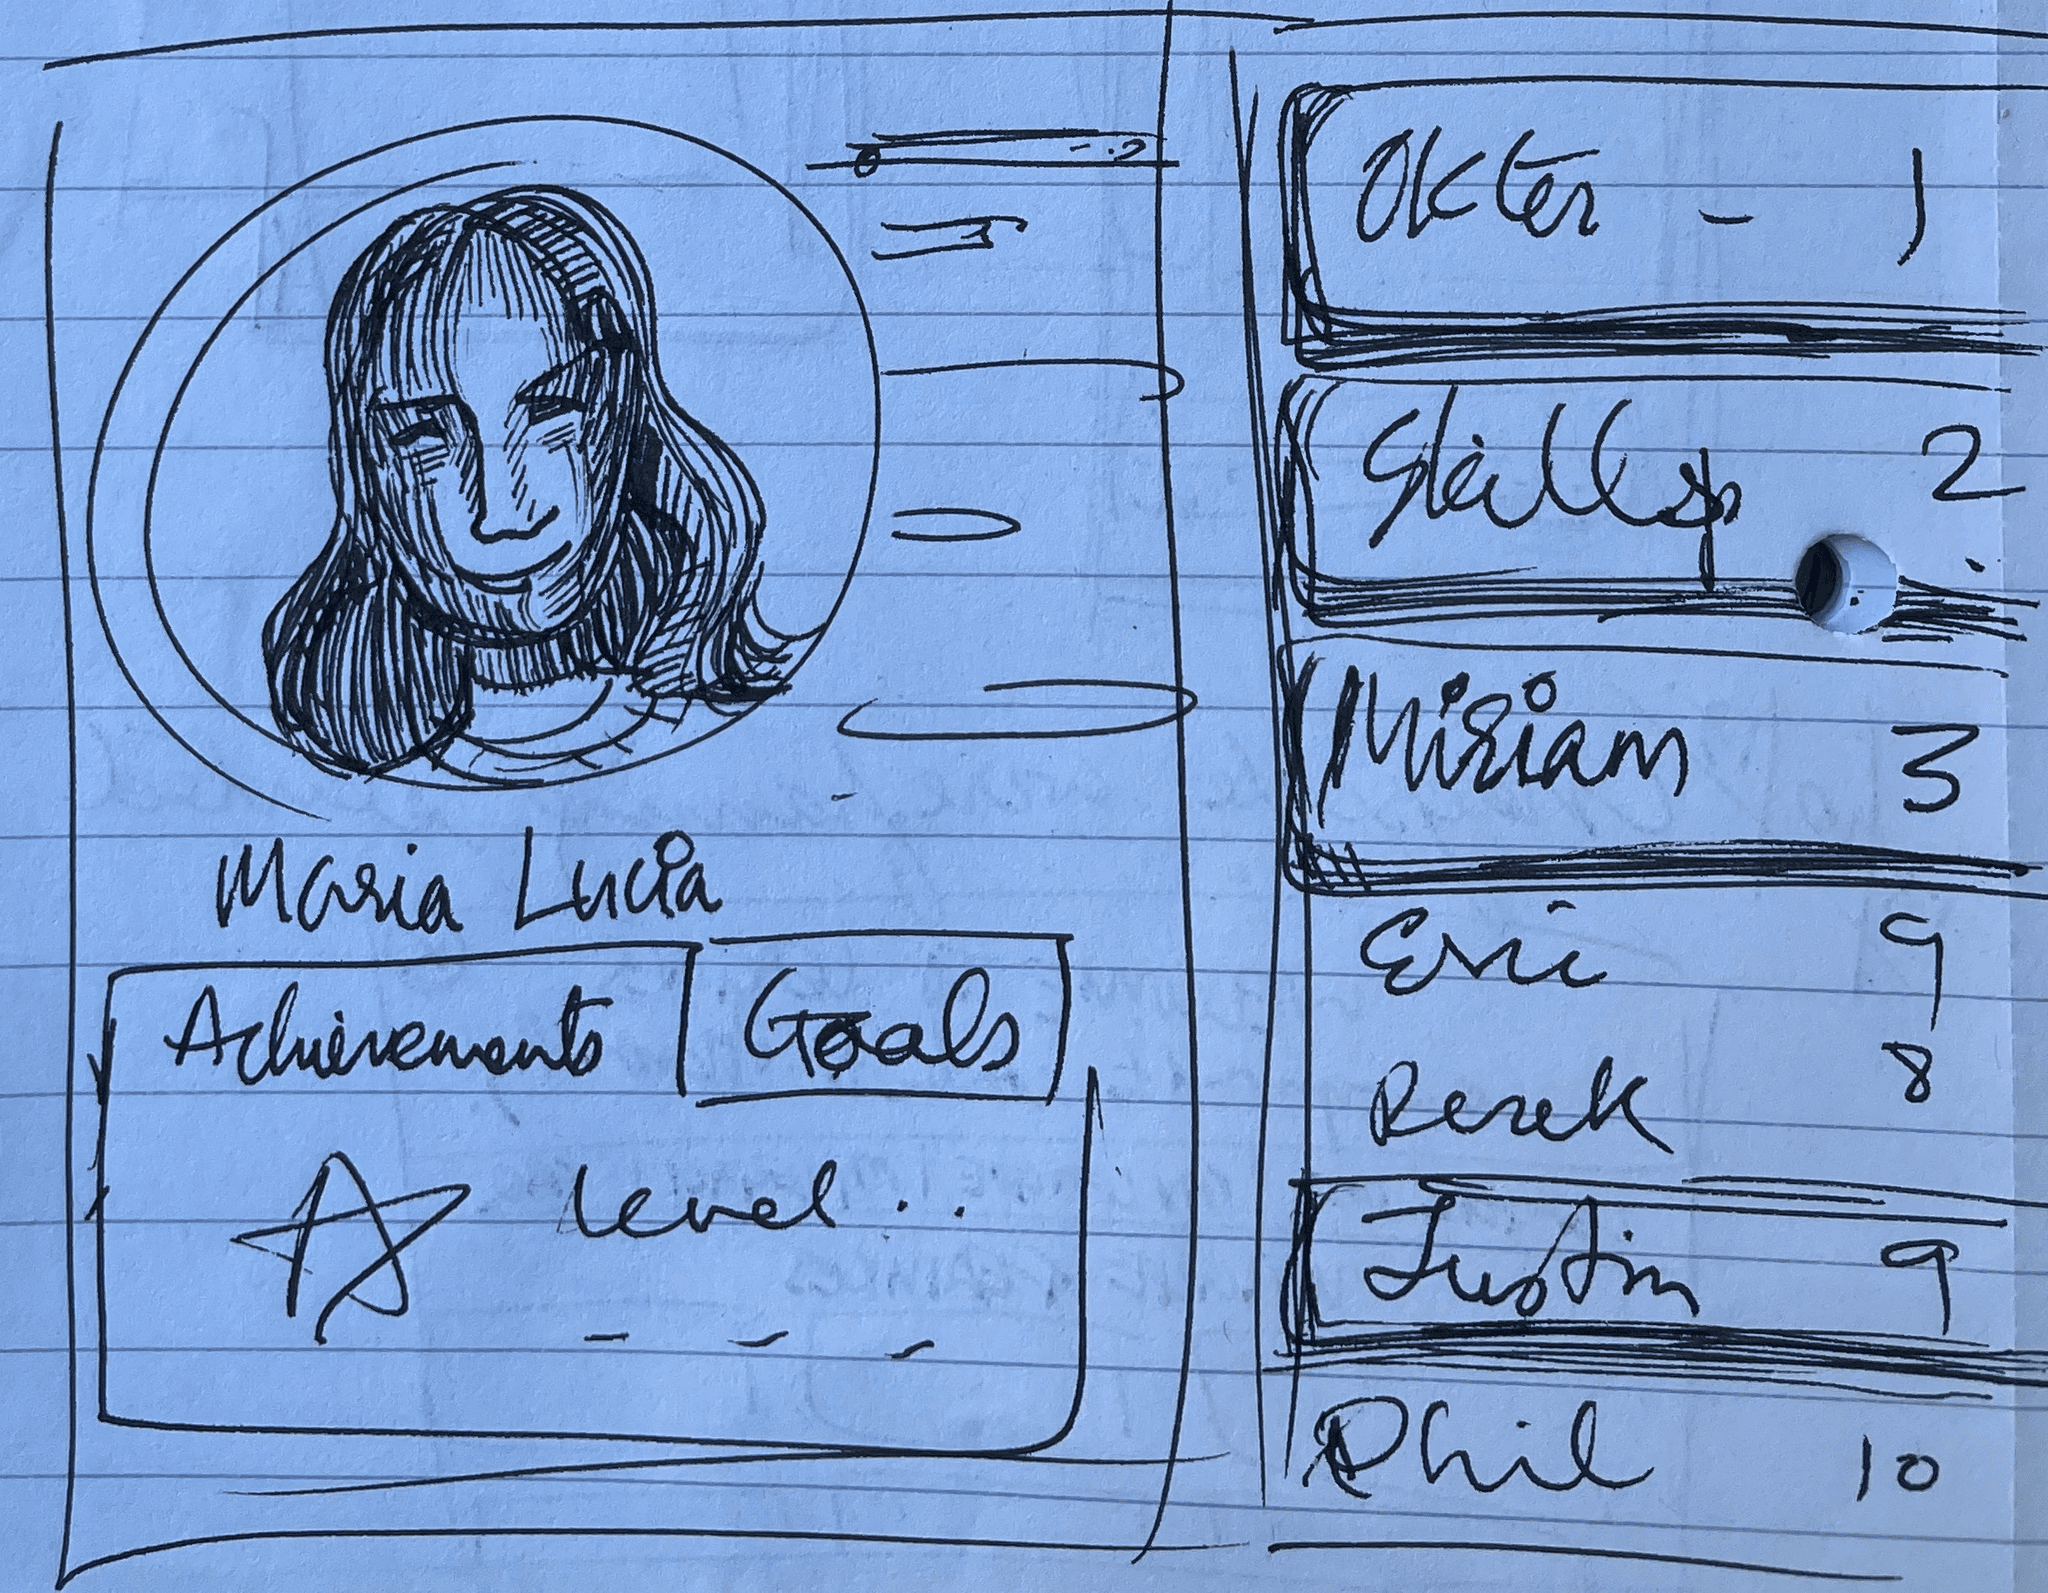 Maria Lucia
Achievements Goals
level..
Okter - 1
2
Miriam 3
Eric 9
Derek 8
Justin 9
Phil 10